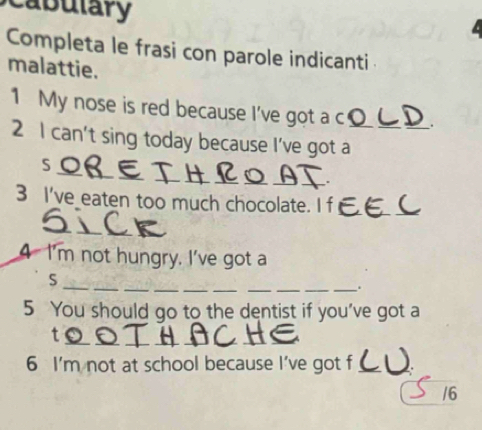 Vocabulary
4
Completa le frasi con parole indicanti
malattie.
1 My nose is red because I've got a cOLD.
2 I can't sing today because I've got a
sORE THROAT.
3 I've eaten too much chocolate. I fEEL
SICK
4 I'm not hungry. I've got a
s_ _ _ _ _ _ _ _ _ _.
5 You should go to the dentist if you've got a
tOOTHACHE
6 I'm not at school because I've got fLU.
5 /6